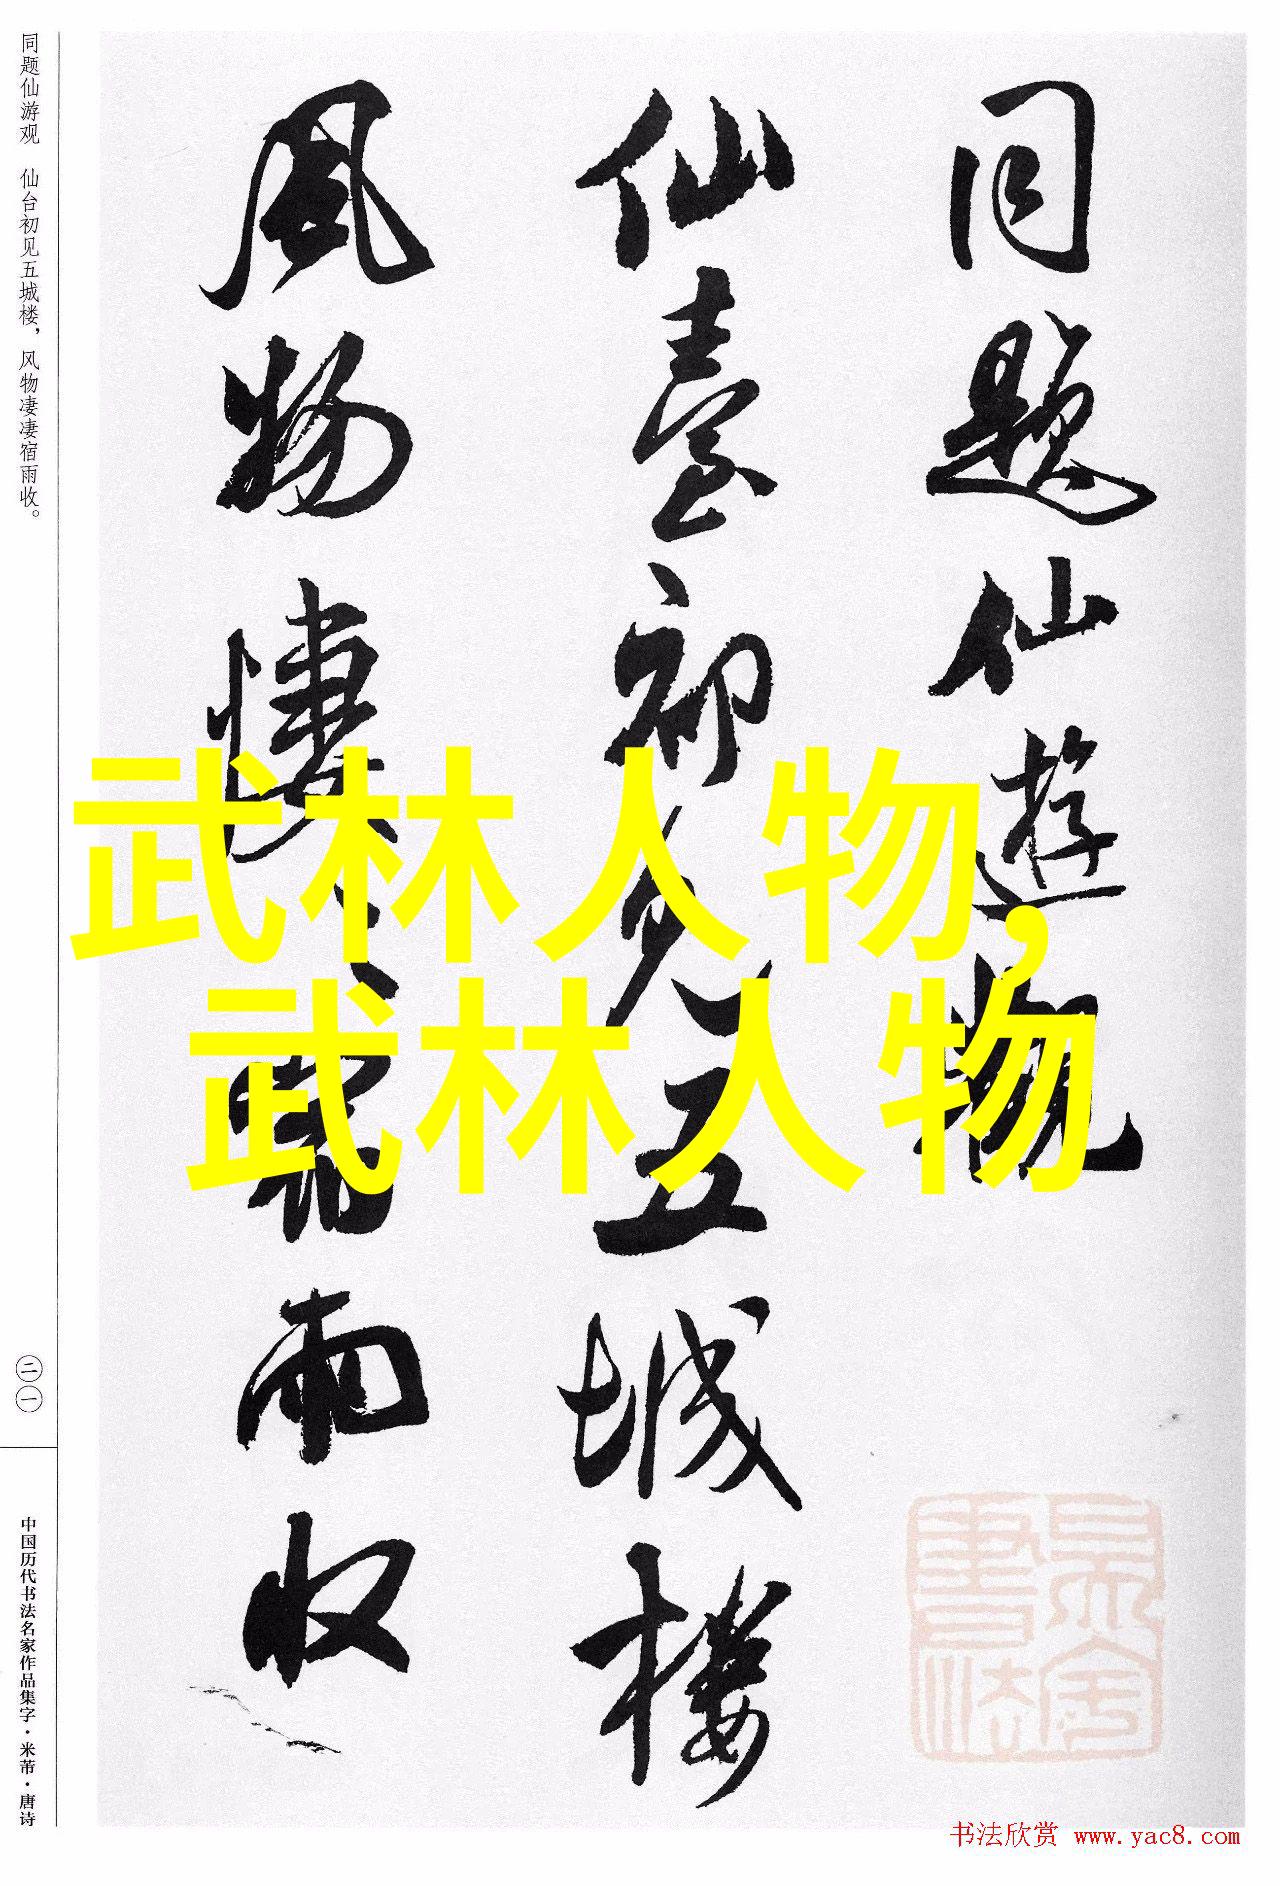 同题仙游观　仙台初见五城楼，风物凄凄宿雨收。
二一
中国历代书法名家作品集字·米芾·唐诗
同题仙遊观
仙臺初见五城楼
风物悽々宿雨收
武林人物,
武林人物
书法欣赏 www.yac8.com